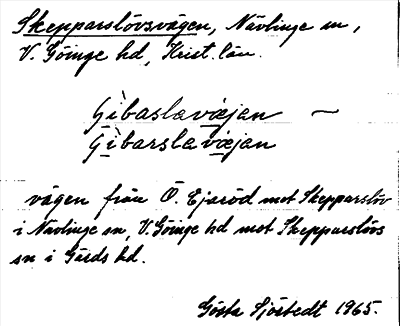 Skepparslövsvägen, Nävlinge sn,
V. Göinge hd, Krist. län.
Gìbaslavœjan ~
Gìbarslavœjan
vägen från Ö. Ejaröd mot Skepparslöv
i Nävlinge sn, V. Göinge hd mot Skepparslövs
sn i Gärds hd.
Gösta Sjöstedt 1965.